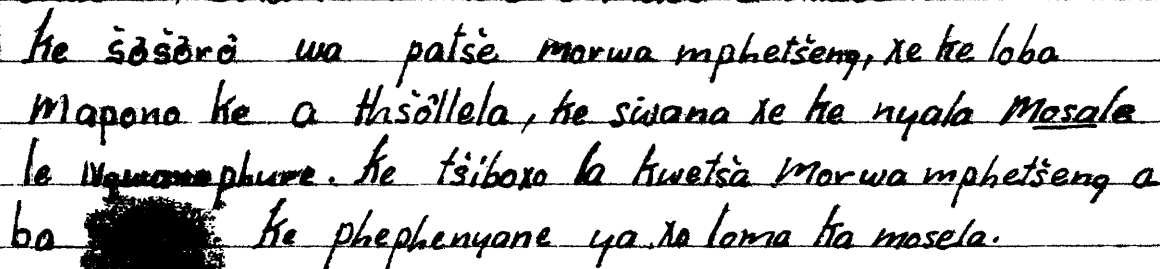 ke šošoro wa patše morwa mphetšeng, xe ke loba
Mapono ke a thšollela, ke siwana xe ke nyala Mosale
le phure. Ke tšiboxo la kwetša Morwa mphetšeng a
ba ke phephenyane ya xo loma ka mosela.